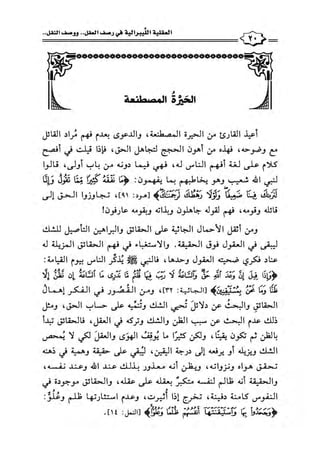 العقلية الليبرالية في رصف العقل.. ووصف النقل..
٢٠
الحَيْرةُ المصطنعة
أعيذ القارئ من الحيرة المصطنعة، والدعوى بعدم فهم مُراد القائل
مع وضوحه، فهذه من أهون الحجج لتجاهل الحق، فإذا قيلت في أفصح
كلام على لغة أفهم الناس له، فهي فيما دونه من باب أولى، قالوا
لنبي الله شعيب وهو يخاطبهم بما يفهمون: ﴿مَا نَفْقَهُ كَثِيرًا مِّمَّا تَقُولُ وَإِنَّا
لَنَرَىٰكَ فِينَا ضَعِيفًا وَلَوْلَا رَهْطُكَ لَرَجَمْنَٰكَ﴾ [هود: ٩١]، تجاوزوا الحق إلى
قائله وقومه، فهم لقوله جاهلون وبذاته وبقومه عارفون!
ومن أثقل الأحمال الجاثية على الحقائق والبراهين التأصيل للشك
ليبقى في العقول فوق الحقيقة. والاستغباء في فهم الحقائق المزيلة له
عناد فكري ضحيته العقول وحدها، فالنبي ﷺ يُذكّر الناس بيوم القيامة:
﴿وَإِذَا قِيلَ إِنَّ وَعْدَ اللَّهِ حَقٌّ وَالسَّاعَةُ لَا رَيْبَ فِيهَا قُلْتُم مَّا نَدْرِى مَا السَّاعَةُ إِن نَّظُنُّ إِلَّا
ظَنًّا وَمَا نَحْنُ بِمُسْتَيْقِنِينَ﴾ [الجاثية: ٣٢]، ومن القُصُور في الفكر إهمال
الحقائق والبحث عن دلائل تُحيي الشك وتُنميه على حساب الحق، ومثل
ذلك عدم البحث عن سبب الظن والشك وتركه في العقل، فالحقائق تبدأ
بالظن ثم تكون يقينًا، ولكن كثيرًا ما يُوقِفُ الهوَى والعقلَ لكي لا يُمحص
الشك ويزيله أو يرفعه إلى درجة اليقين، ليُبقي على حقيقة وهمية في ذهنه
تحقق هواه ونزواته، ويظن أنه معذور بذلك عند الله وعند نفسه،
والحقيقة أنه ظالم لنفسه متكبرٌ بعقله على عقله، والحقائق موجودة في
النفوس كامنة دفينة، تخرج إذا أُثيرت، وعدم استثارتها ظلم وعُلُوٌّ:
﴿وَجَحَدُوا بِهَا وَاسْتَيْقَنَتْهَا أَنفُسُهُمْ ظُلْمًا وَعُلُوًّا﴾ [النمل: ١٤].